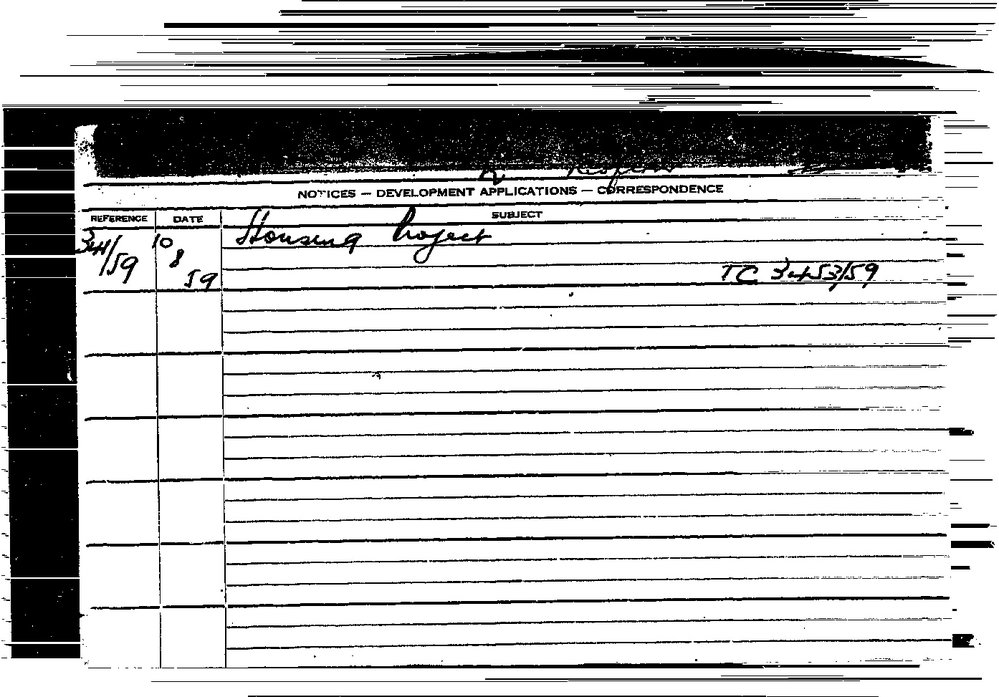 NOTICES — DEVELOPMENT APPLICATIONS — CORRESPONDENCE
REFERENCE DATE SUBJECT
344/59 10 8 59 Housing Project
TC 3453/59